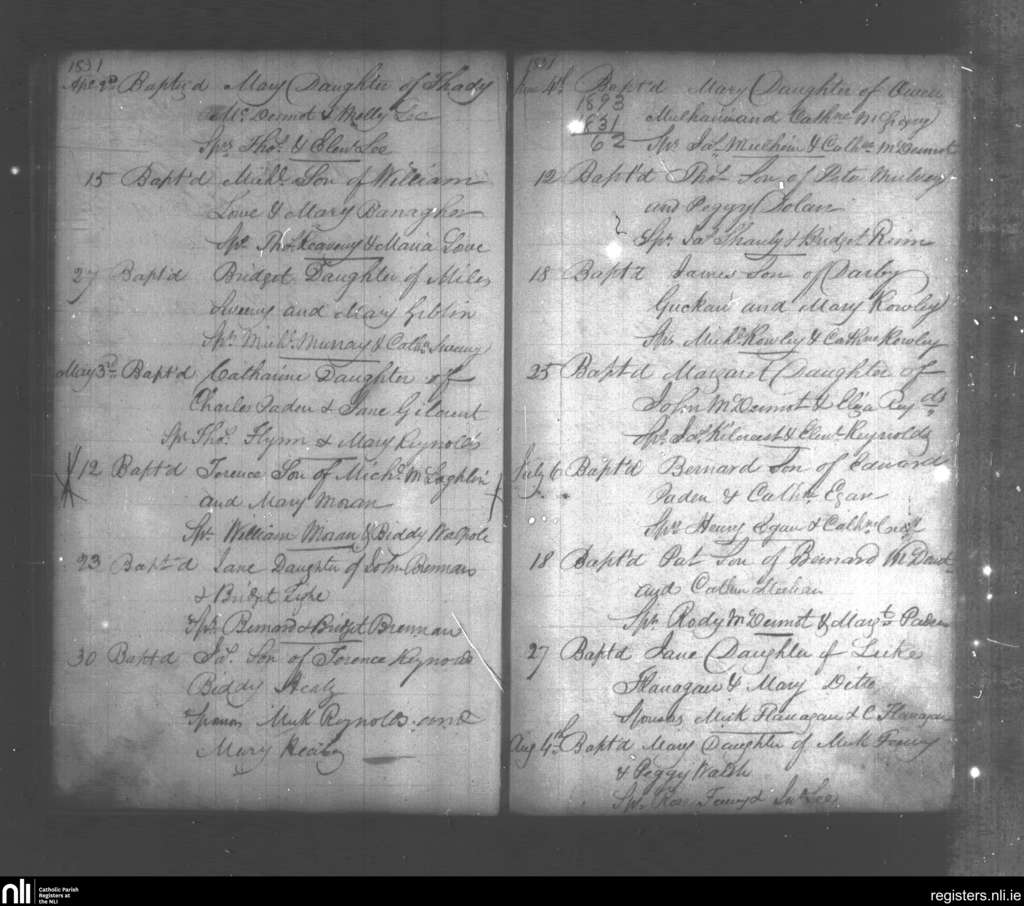 1831
Apl 3d Baptiz'd Mary Daughter of Thady
Mc Dermot & Molly Lee
Sprs Thos. & Elenr Lee
15 Bapt'd Michl. Son of William
Love & Mary Banaghn
Sps. Thos. Keaveny & Maria Love
27 Bapt'd Bridget Daughter of Miles
Sweeny and Mary Giblin
Sprs. Michl. Murray & Cathn. Sweeny
May 3rd Bapt'd Catharine Daughter of
Charles Faden & Jane
Spr Thos. Flynn & Mary Reynolds
12 Bapt'd Terence Son of Michl. McLoghlin
and Mary Moran
Sprs. William Moran & Biddy Walpole
23 Bapt'd Jane Daughter of John Brennan
& Bridget
Sprs Bernard & Bridget Brennan
30 Bapt'd Jas. Son of Terence Reynolds
Biddy Healy
Sponsrs Mick Reynolds and
Mary Healy
1831
June 4th Bapt'd Mary Daughter of Owen
1893
Mulhairn and Cathne
1831
62 Sprs Jas. Mulhern & Cathne McDermot
12 Bapt'd Thos. Son of Peter Mulvey
and Peggy Dolan
Sprs. Jas. Shanly & Bridget
18 Bapt'd James Son of Darby
Guckan and Mary Rowley
Sprs Michl. Rowley & Cathne Rowley
25 Bapt'd Margaret Daughter of
John McDermot & Eliza Reyds
Sprs. Jas. & Elenr. Reynolds
July 6 Bapt'd Bernard Son of Edward
Faden & Cathn. Egan
Sprs Henry Egan & Cathn.
18 Bapt'd Pat Son of Bernard
and Cathn Meehan
Sprs Rody McDermot & Margt. Faden
27 Bapt'd Jane Daughter of Luke
Flanagan & Mary Ditto
Sponsors Mick Flanagan & C. Flanagan
Aug 4th Bapt'd Mary Daughter of Mick
& Peggy Walsh
Sprs. Rose & Lee
nli
Catholic Parish
Registers at
the NLI
registers.nli.ie